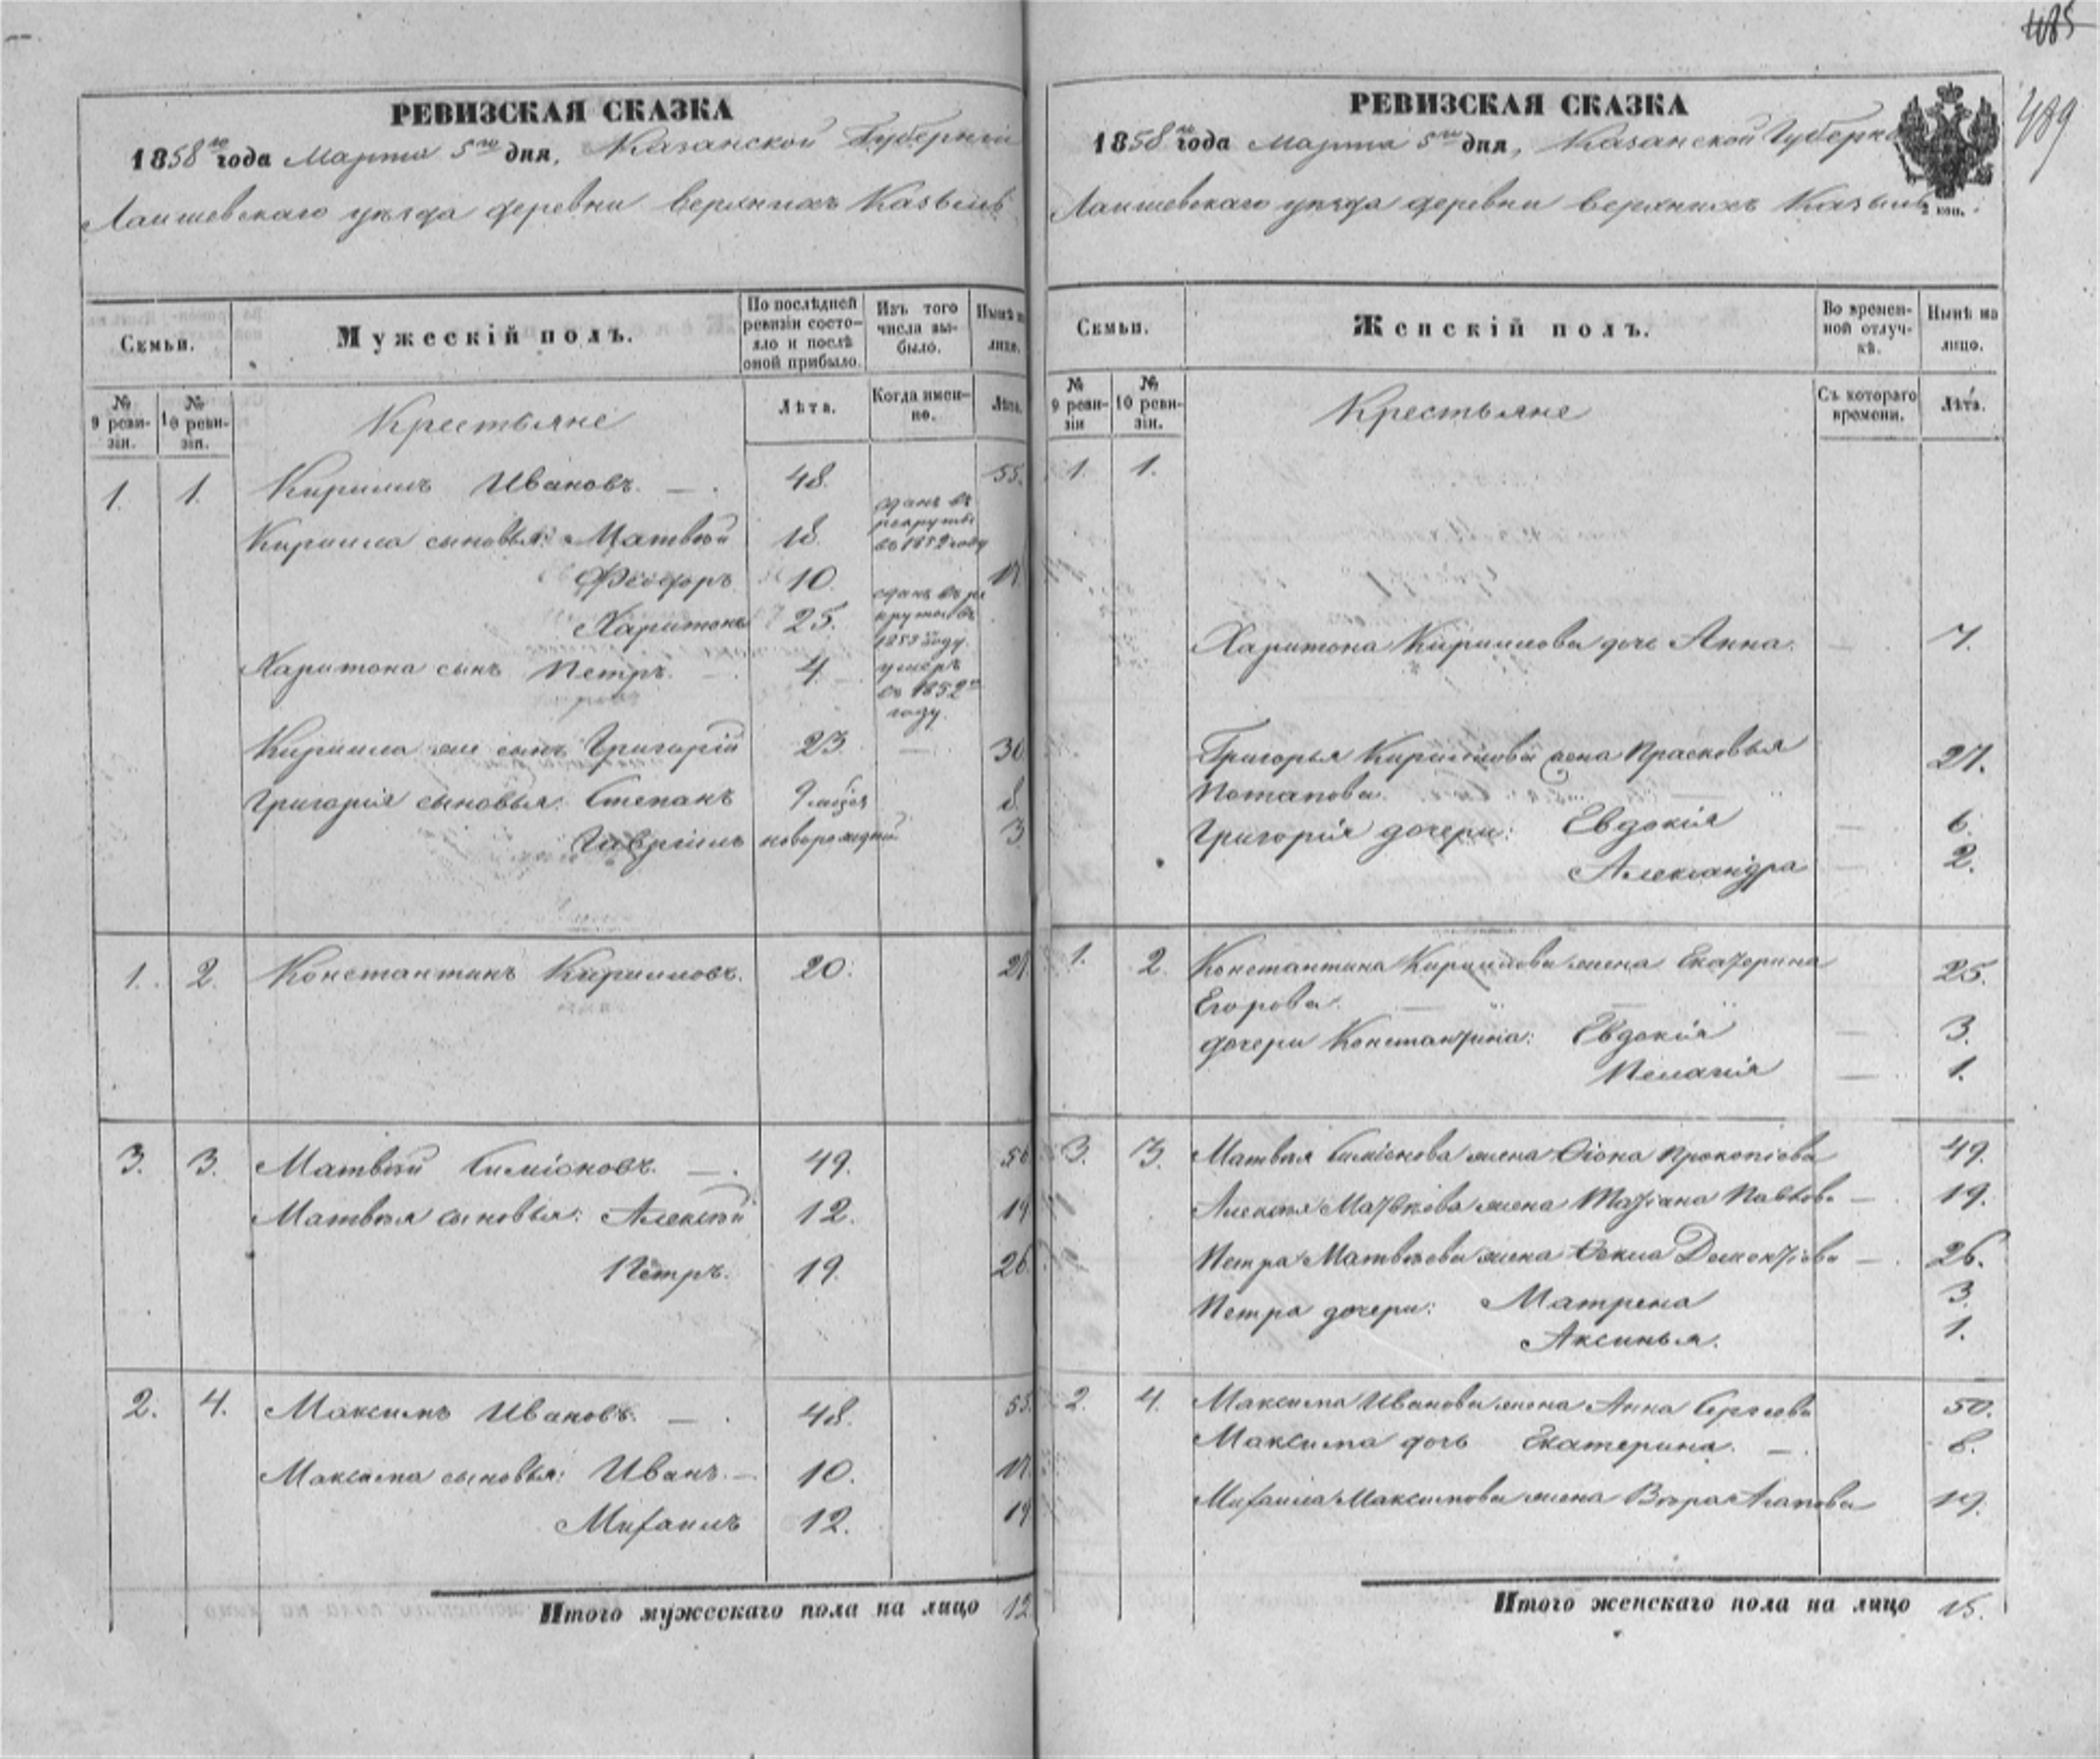 РЕВИЗСКАЯ СКАЗКА
1858го года Марта 5го дня, Казанской Губернии
Лаишевскаго уѣзда деревни Верхнихъ Казыль
Семьи.
Мужескій полъ.
По послѣдней ревизіи состояло и послѣ оной прибыло.
Изъ того числа выбыло.
Нынѣ на лицо.
№ 9 ревизіи.
№ 10 ревизіи.
Крестьяне
Лѣта.
Когда именно.
Лѣта.
1. 1. Кириллъ Ивановъ. — 48. 55.
Кирилла сыновья: Матвѣй 18. сданъ въ рекруты въ 1852 году
Феодоръ 10. 17.
Харитонъ 25. сданъ въ рекруты въ 1853 году.
Харитона сынъ Петръ. — 4. умеръ въ 1852м году.
Кирилла же сынъ Григорій 23. — 30.
Григорія сыновья: Степанъ 8.
Гавріилъ новорожден 3
1. 2. Константинъ Кирилловъ. 20. 27
3. 3. Матвѣй Симіоновъ. — 49. 56
Матвѣя сыновья: Алексѣй 12. 19
Петръ. 19. 26
2. 4. Максимъ Ивановъ. — 48. 55.
Максима сыновья: Иванъ. — 10. 17
Михаилъ 12. 19
Итого мужескаго пола на лицо 12
485
489
РЕВИЗСКАЯ СКАЗКА
1858го года Марта 5го дня, Казанской Губерн
Лаишевскаго уѣзда деревни Верхнихъ Казыль
2 коп.
Семьи.
Женскій полъ.
Во временной отлучкѣ.
Нынѣ на лицо.
№ 9 ревизіи
№ 10 ревизіи.
Крестьяне
Съ котораго времени.
Лѣта.
1. 1.
Харитона Кириллова дочь Анна. — 7.
Григорья Кириллова жена Прасковья
Потапова. 27.
Григорія дочери: Евдокія — 6.
Александра — 2.
1. 2. Константина Кириллова жена Екатерина
Егорова. 25.
дочери Константина: Евдокія — 3.
Пелагія — 1.
3. 3. Матвѣя Симіонова жена Ѳіона Прокопіева 49.
Алексѣя Матвѣева жена Татіана Павлова — 19.
Петра Матвѣева жена Ѳекла Дементіева — 26.
Петра дочери: Матрена 3.
Аксинья. 1.
2. 4. Максима Иванова жена Анна Сергѣева 50.
Максима дочь Екатерина. — 8.
Михаила Максимова жена Вѣра Агапова 19.
Итого женскаго пола на лицо 15.